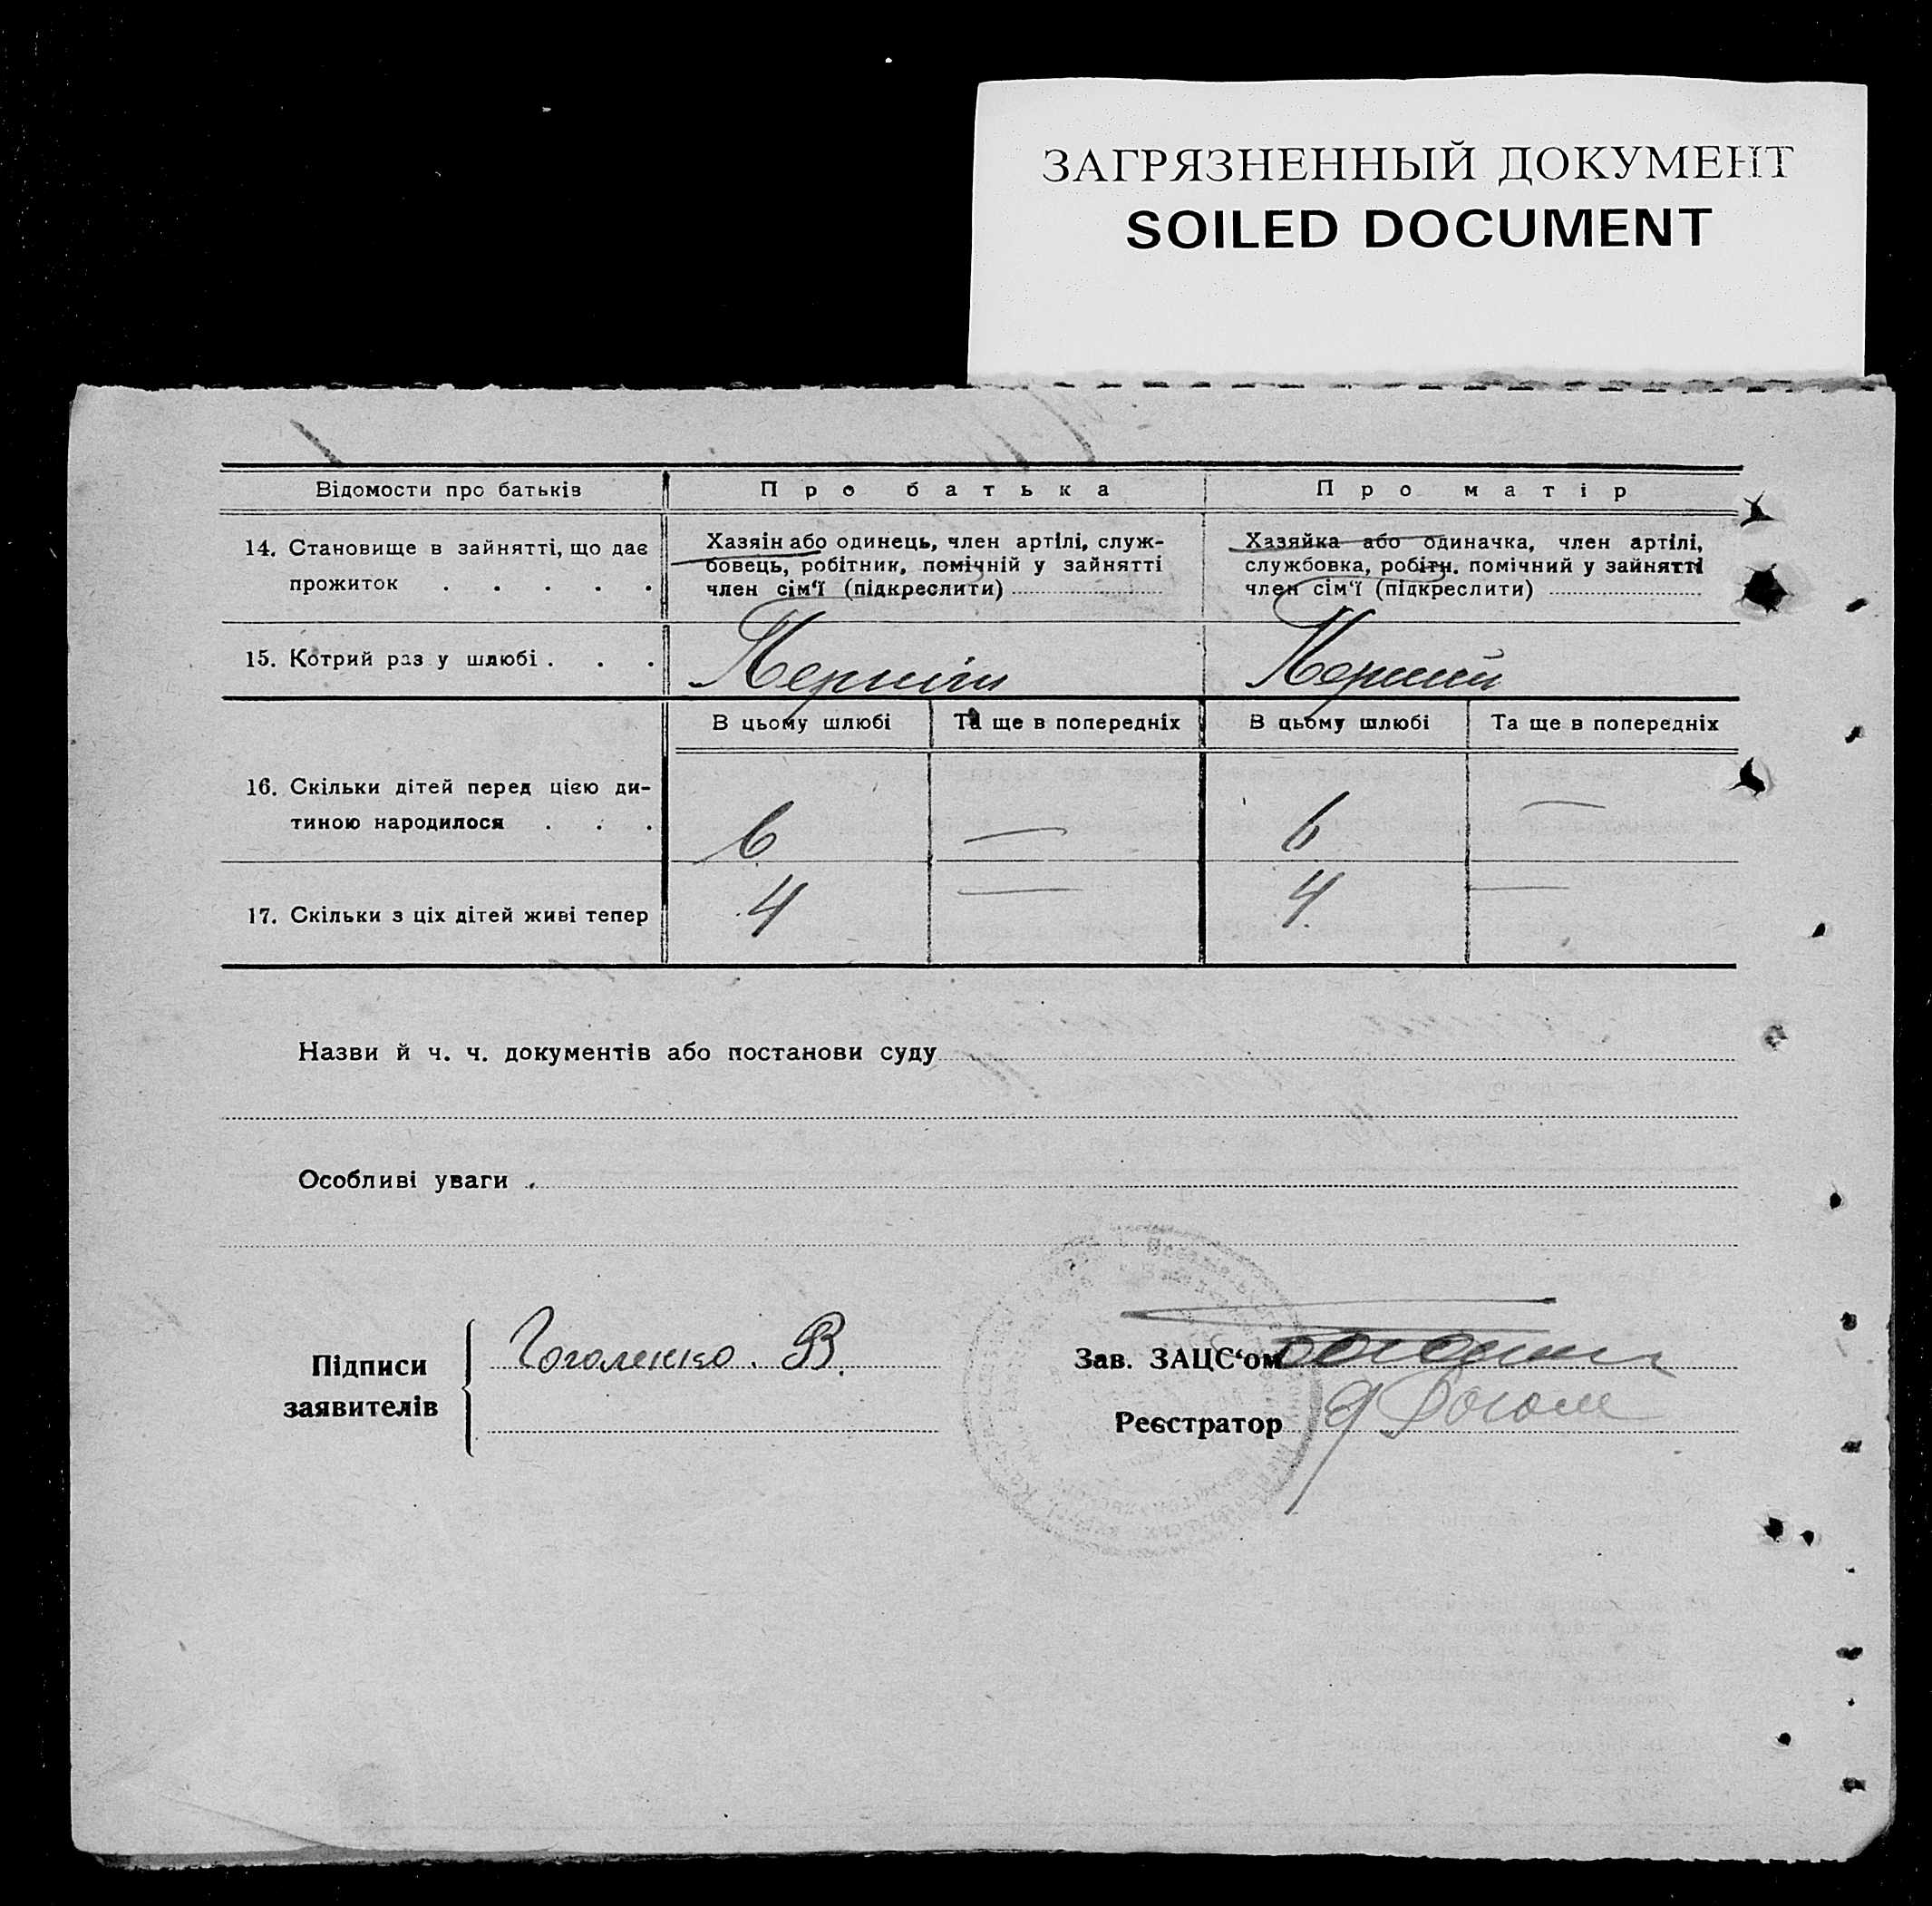 ЗАГРЯЗНЕННЫЙ ДОКУМЕНТ
SOILED DOCUMENT
Відомости про батьків
Про батька
Про матір
14. Становище в зайнятті, що дає
прожиток . . . . .
Хазяін або одинець, член артілі, служ-
бовець, робітник, помічній у зайнятті
член сім'ї (підкреслити)
Хазяйка або одиначка, член артілі,
службовка, робітн. помічний у зайнятті
член сім'ї (підкреслити)
15. Котрий раз у шлюбі . . .
Першій
Перший
В цьому шлюбі
Та ще в попередніх
В цьому шлюбі
Та ще в попередніх
16. Скільки дітей перед цією ди-
тиною народилося . . .
6 — 6 —
17. Скільки з ціх дітей живі тепер
4 — 4 —
Назви й ч. ч. документів або постанови суду
Особливі уваги
Підписи
заявителів
Гоголенко. В.
Зав. ЗАЦС'ом
Реєстратор